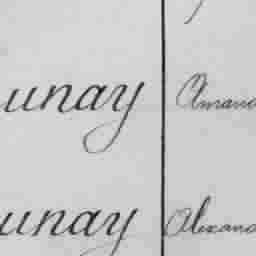 unay Amand
unay Alexand